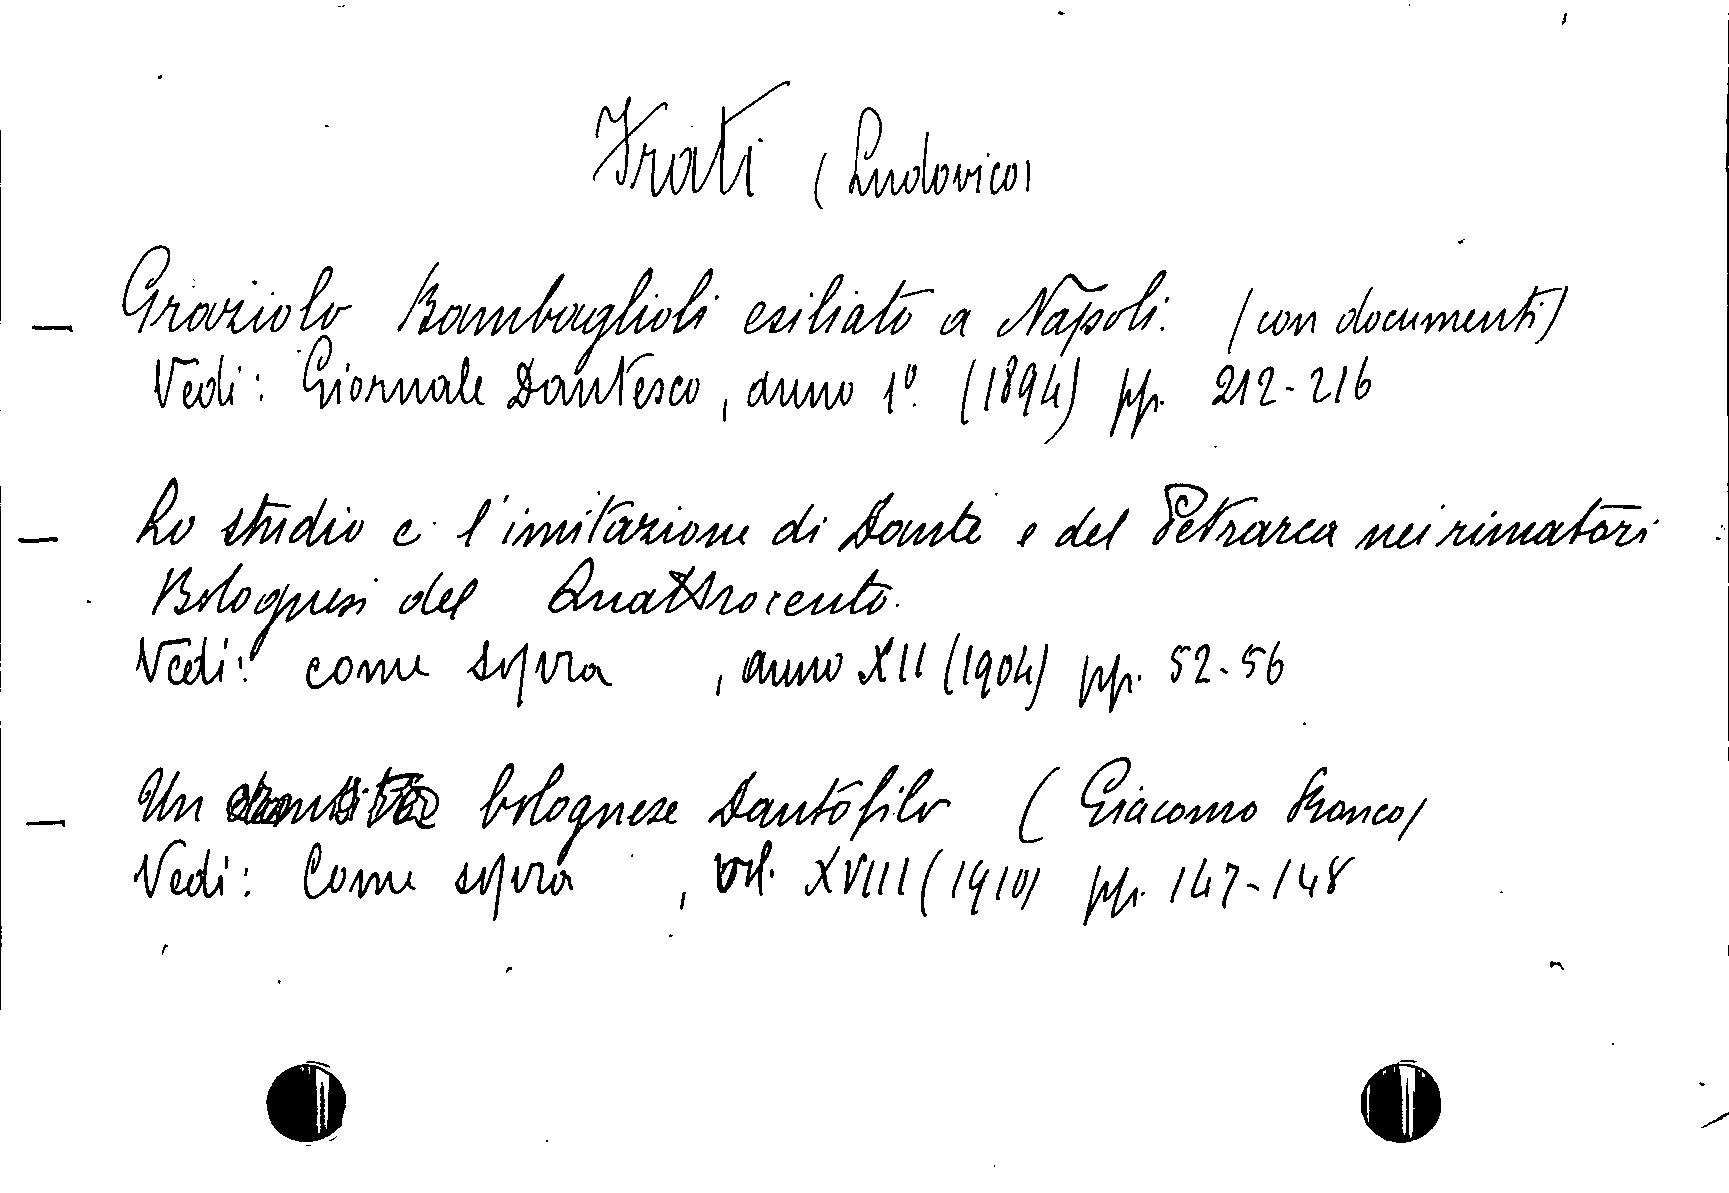 Frati (Ludovico)
— Graziolo Bambaglioli esiliato a Napoli. (con documenti)
Vedi: Giornale Dantesco, anno 1º. (1894) pp. 212-216
— Lo studio e l'imitazione di Dante e del Petrarca nei rimatori
Bolognesi del Quattrocento.
Vedi: come sopra , anno XII (1904) pp. 52-56
— Un bolognese Dantofilo (Giacomo Ronco)
Vedi: Come sopra , vol. XVIII (1910) pp. 147-148